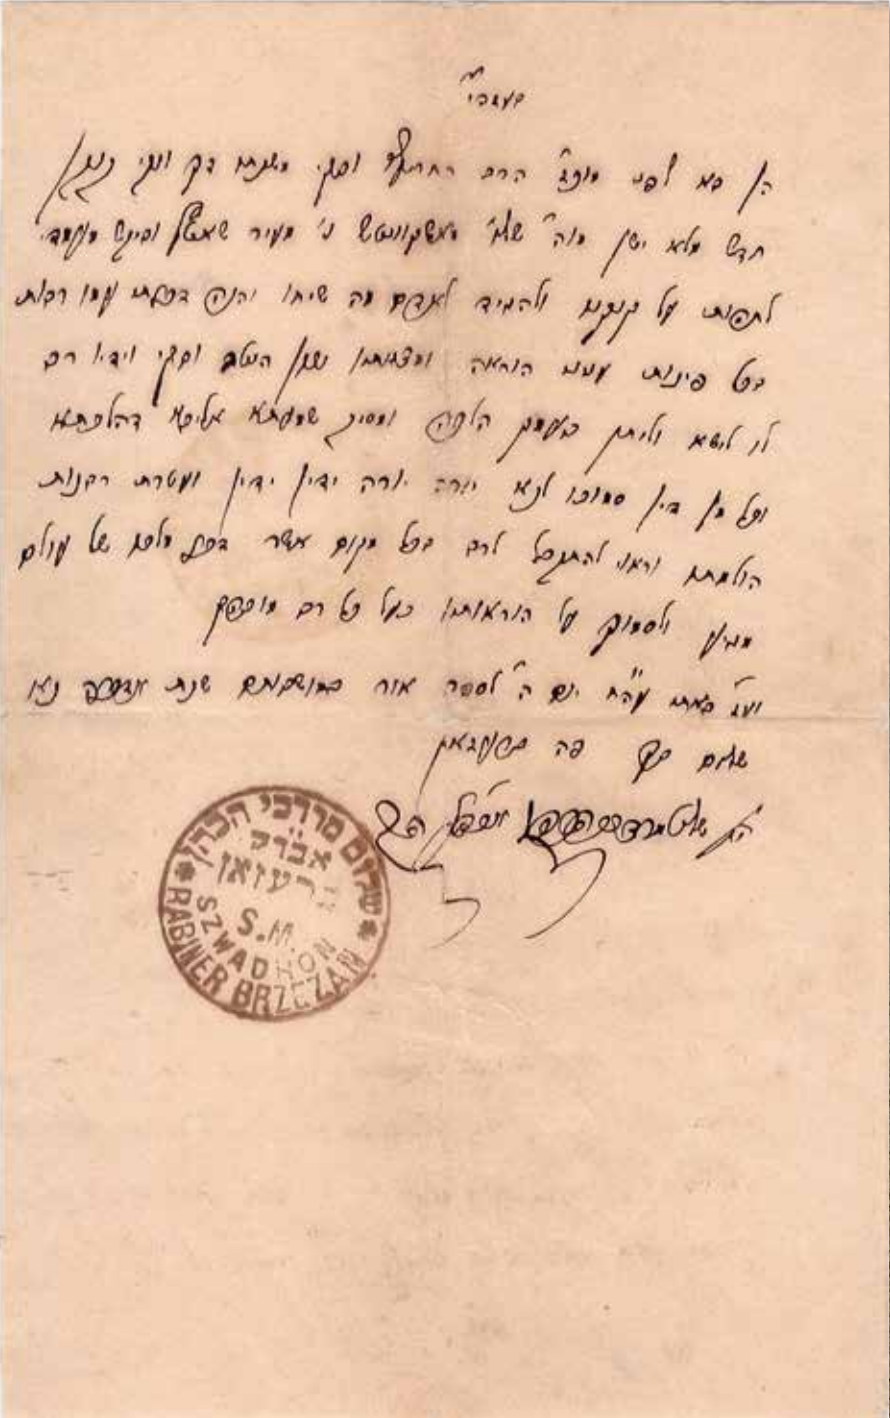 בעזהי"ת
הן בא לפני מופלג הרב החריף ובקי משנתו דק ונקי קנקן
חדש מלא ישן מוה' שלמה נ' מעיר ובקש מעמדי
לתהות על קנקנו ולהגיד לאדם מה שיחו והנה דברתי עמו רבות
בכל פינות עניני הוראה ומצאתיו נשען היטב ובקי וידיו רב
לו לישא וליתן בעומק הלכה ומסיק שמעתא אליבא דהלכתא
ועל כן דין סמוכו לנא יורה יורה ידין ידין ועטרת רבנות
הולמתו וראוי להתקבל לרב בכל מקום אשר דבר מלכו של עולם
מגיע ולסמוך על הוראותיו כעל כל רב מובהק
וע"ז באתי עה"ח יום ה' לספר אור במושבותם שנת נאו
שלום רב פה ברעזאן
הק' שלום מרדכי הכהן
שלום מרדכי הכהן
אבד"ק
ברעזאן
S.M.
SZWADRON
RABINER BRZEZAN